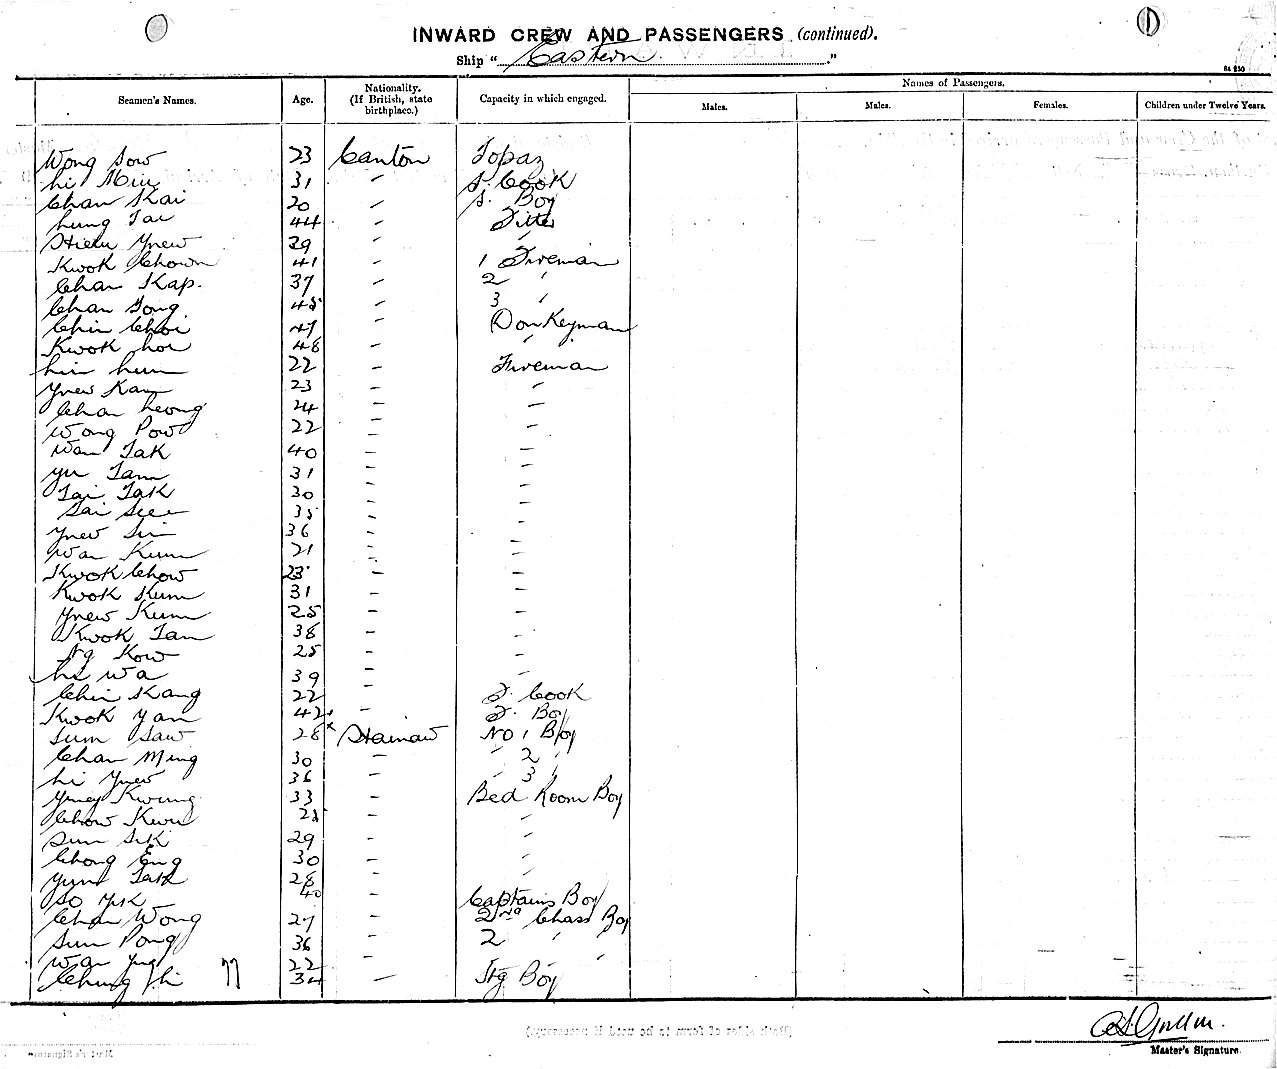 INWARD CREW AND PASSENGERS (continued).
Ship "Eastern."
SA 250
Seamen's Names. Age. Nationality. (If British, state birthplace.) Capacity in which engaged. Names of Passengers.
Males. Males. Females. Children under Twelve Years.
Wong Sow 23 Canton Topaz
Li Min 31 " S. Cook
Chan Kai 20 " S. Boy
Lung Tai 44 " Fitter
Ynew 29 " "
Kwok Chown 41 " 1 Fireman
Chan Kap. 37 " 2 "
Chan Tong. 45 " 3 "
Chin Choi 47 " Donkeyman
Kwok Hoi 48 " "
22 " Fireman
Ynew Kam 23 " "
Chan Leong 24 " "
Wong Pow 22 " "
Wan Tak 40 " "
Yu Tam 31 " "
Tai Tak 30 " "
Sai See 35 " "
Ynew Sin 36 " "
Wan Kum 21 " "
Kwok Chow 23 " "
Kwok Kum 31 " "
Ynew Kum 25 " "
Kwok Tam 38 " "
Ng Kow 25 " "
Wa 39 " "
Chin Kang 22 " F. Cook
Kwok Yan 42 " F. Boy
Sum Saw 28 Hainaw No 1 Boy
Chan Ming 30 " " 2 "
Li Ynew 36 " " 3 "
Kwong 33 " Bed Room Boy
Chow Kwu 25 " "
Sum Sik 29 " "
Chong Eng 30 " "
Yum Tak 28 " "
So Yik 40 " Captains Boy
Chan Wong 27 " 2nd Class Boy
Sun Pong 36 " 2 " "
Wan 22 " "
Chung Hi 77 34 " Stg Boy
(Both sides of form to be used if necessary.)
Master's Signature.
Master's Signature.